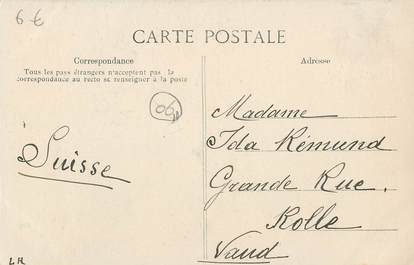 6 €
CARTE POSTALE
Correspondance
Tous les pays étrangers n'acceptent pas la
correspondance au recto se renseigner à la poste
Adresse
06
Suisse
Madame
Ida Rémund
Grande Rue.
Rolle
Vaud